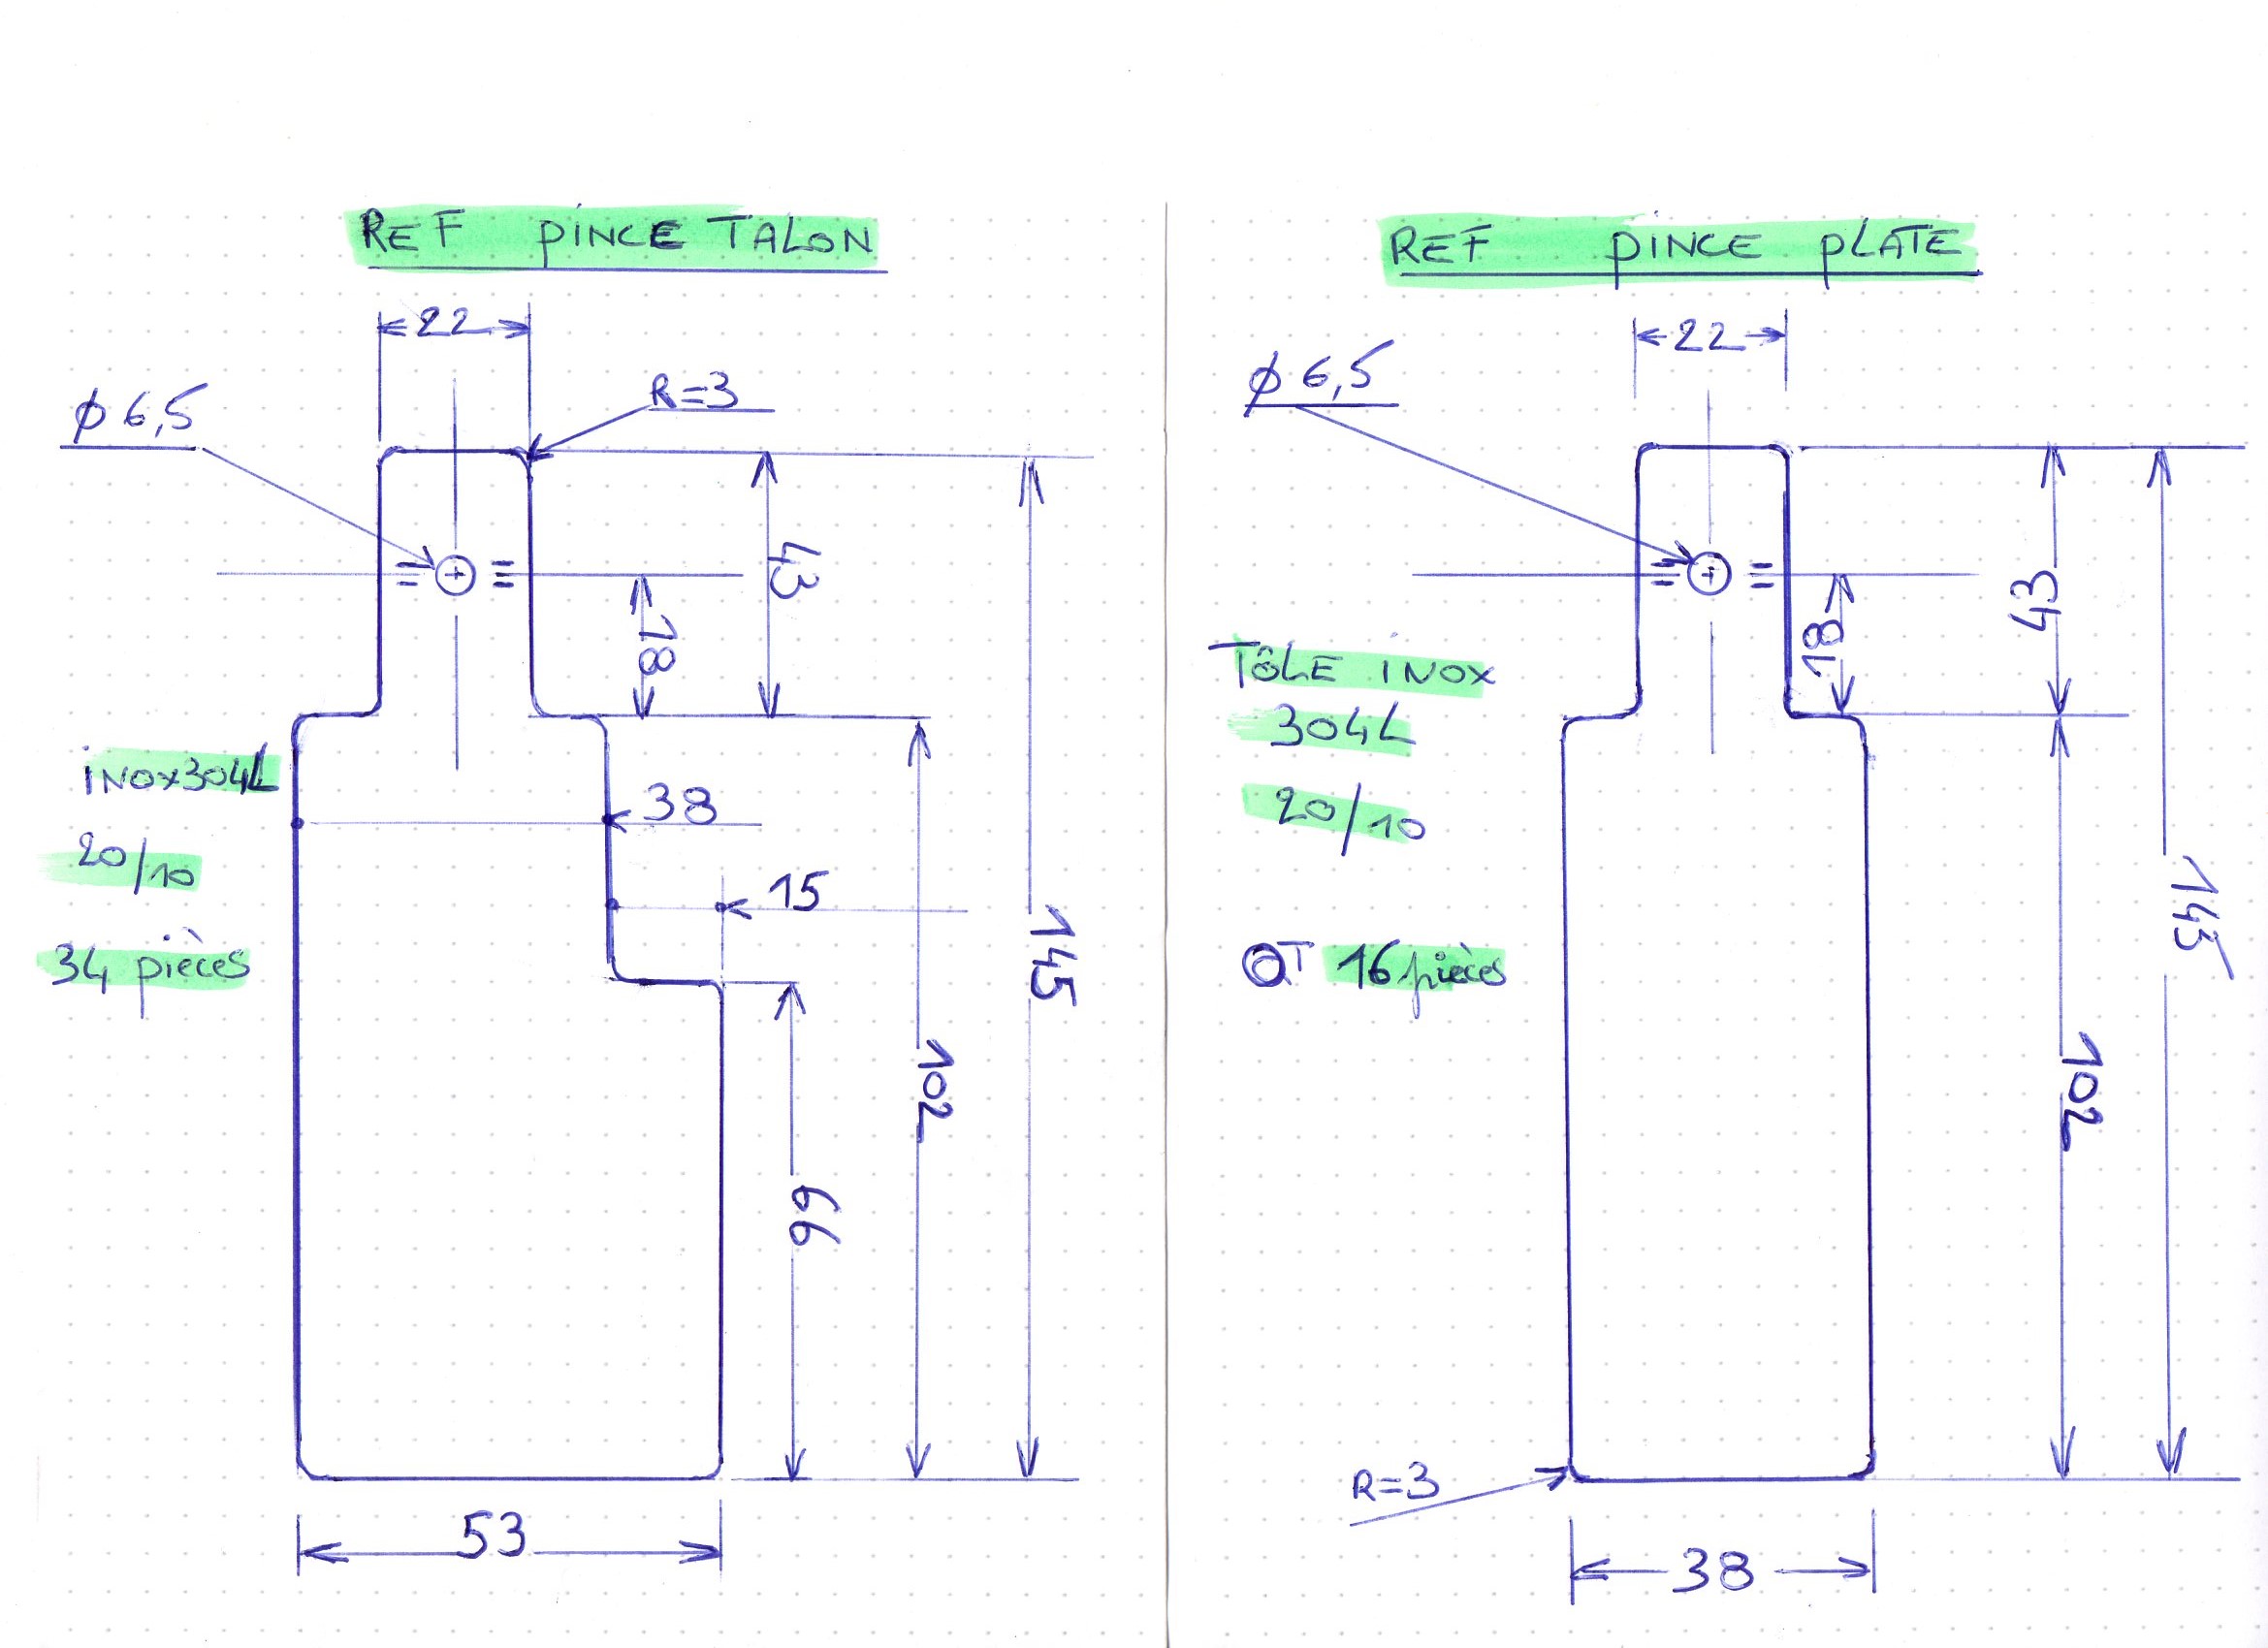 REF PINCE TALON
22
R=3
ϕ 6,5
43
18
INOX304L
20/10
34 pièces
38
15
145
102
66
53
REF PINCE PLATE
22
ϕ 6,5
43
18
TôLE INOX
304L
20/10
QT 16 pièces
145
102
R=3
38